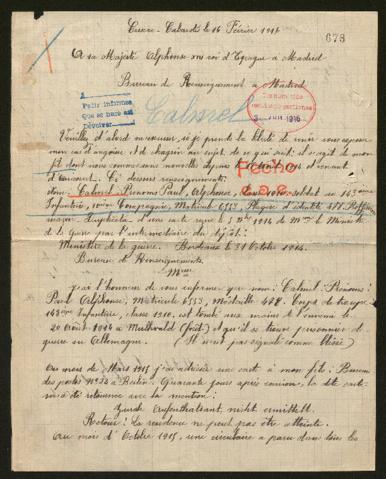 Cuxac-Cabardès le 16 Février 1916
678
A sa Majesté Alphonse XIII roi d'Espagne à Madrid
Bureau de Renseignement à Madrid
Pedir informes
Que se hara asi
Devolver
Calmel
JUN. 1916
Veuillez d'abord m'excuser, si je prends la liberté de venir vous exposer
mon cas d'angoisse et de chagrin au sujet de ce qui suit: il s'agit de mon
fils dont nous sommes sans nouvelle depuis le
Fecho
Ci dessous renseignements
Nom: Calmel Prénoms Paul, Alphonse, soldat au 143ème
Infanterie, Compagnie, Matricule 6553, Plaque d'identité
duplicata d'une carte reçue le 5 9bre 1914 de Mr le Ministre
de la guerre par l'intermédiaire du dépôt:
Ministère de la guerre. Bordeaux le 31 Octobre 1914.
Bureau de Renseignements
M
j'ai l'honneur de vous informer que nom: Calmel. Prénoms:
Paul Alphonse, Matricule 6553, Médaille 478. Corps de troupe
143ème Infanterie, classe 1910. est tombé aux mains de l'ennemi le
20 Août 1914 à Mulhwald (forêt) et qu'il se trouve prisonnier de
guerre en Allemagne. (Il n'est pas signalé comme blessé)
Au mois de Mars 1915 j'ai adressé une carte à mon fils: Bureau
des postes No 24 à Berlin. Quarante jours après environ, la dite carte
m'a été retournée avec la mention:
Zurück Aufenthaltsant, nicht ermittelt.
Retour: La résidence ne peut pas être atteinte.
Au mois d'Octobre 1915, une circulaire a paru dans tous les